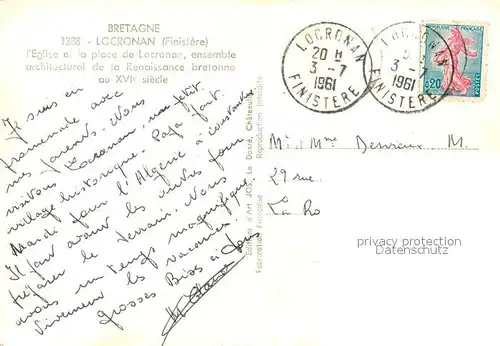 BRETAGNE
1398 - LOCRONAN (Finistère)
l'Eglise et la place de Locronan, ensemble
architectural de la Renaissance bretonne
au XVIe siècle
Je suis en
promenade avec
mes parents. Nous
visitons Locronan, un petit
village historique. Papa part
Mardi pour l'Algérie à Constantine
Il part avant les autres pour
préparer le terrain. Nous
avons un temps magnifique
Vivement les vacances.
grosses Bises à tous
Editions d'Art JOS, Le Doaré, Châteaulin
Fabrication Française - Reproduction Interdite
LOCRONAN
20 H
3 -7
1961
FINISTERE
LOCRONAN
3 -7
1961
FINISTERE
0,20
POSTES
Mr Mme M.
29 rue
La Ro
privacy protection
www.ansichtskartenversand.com